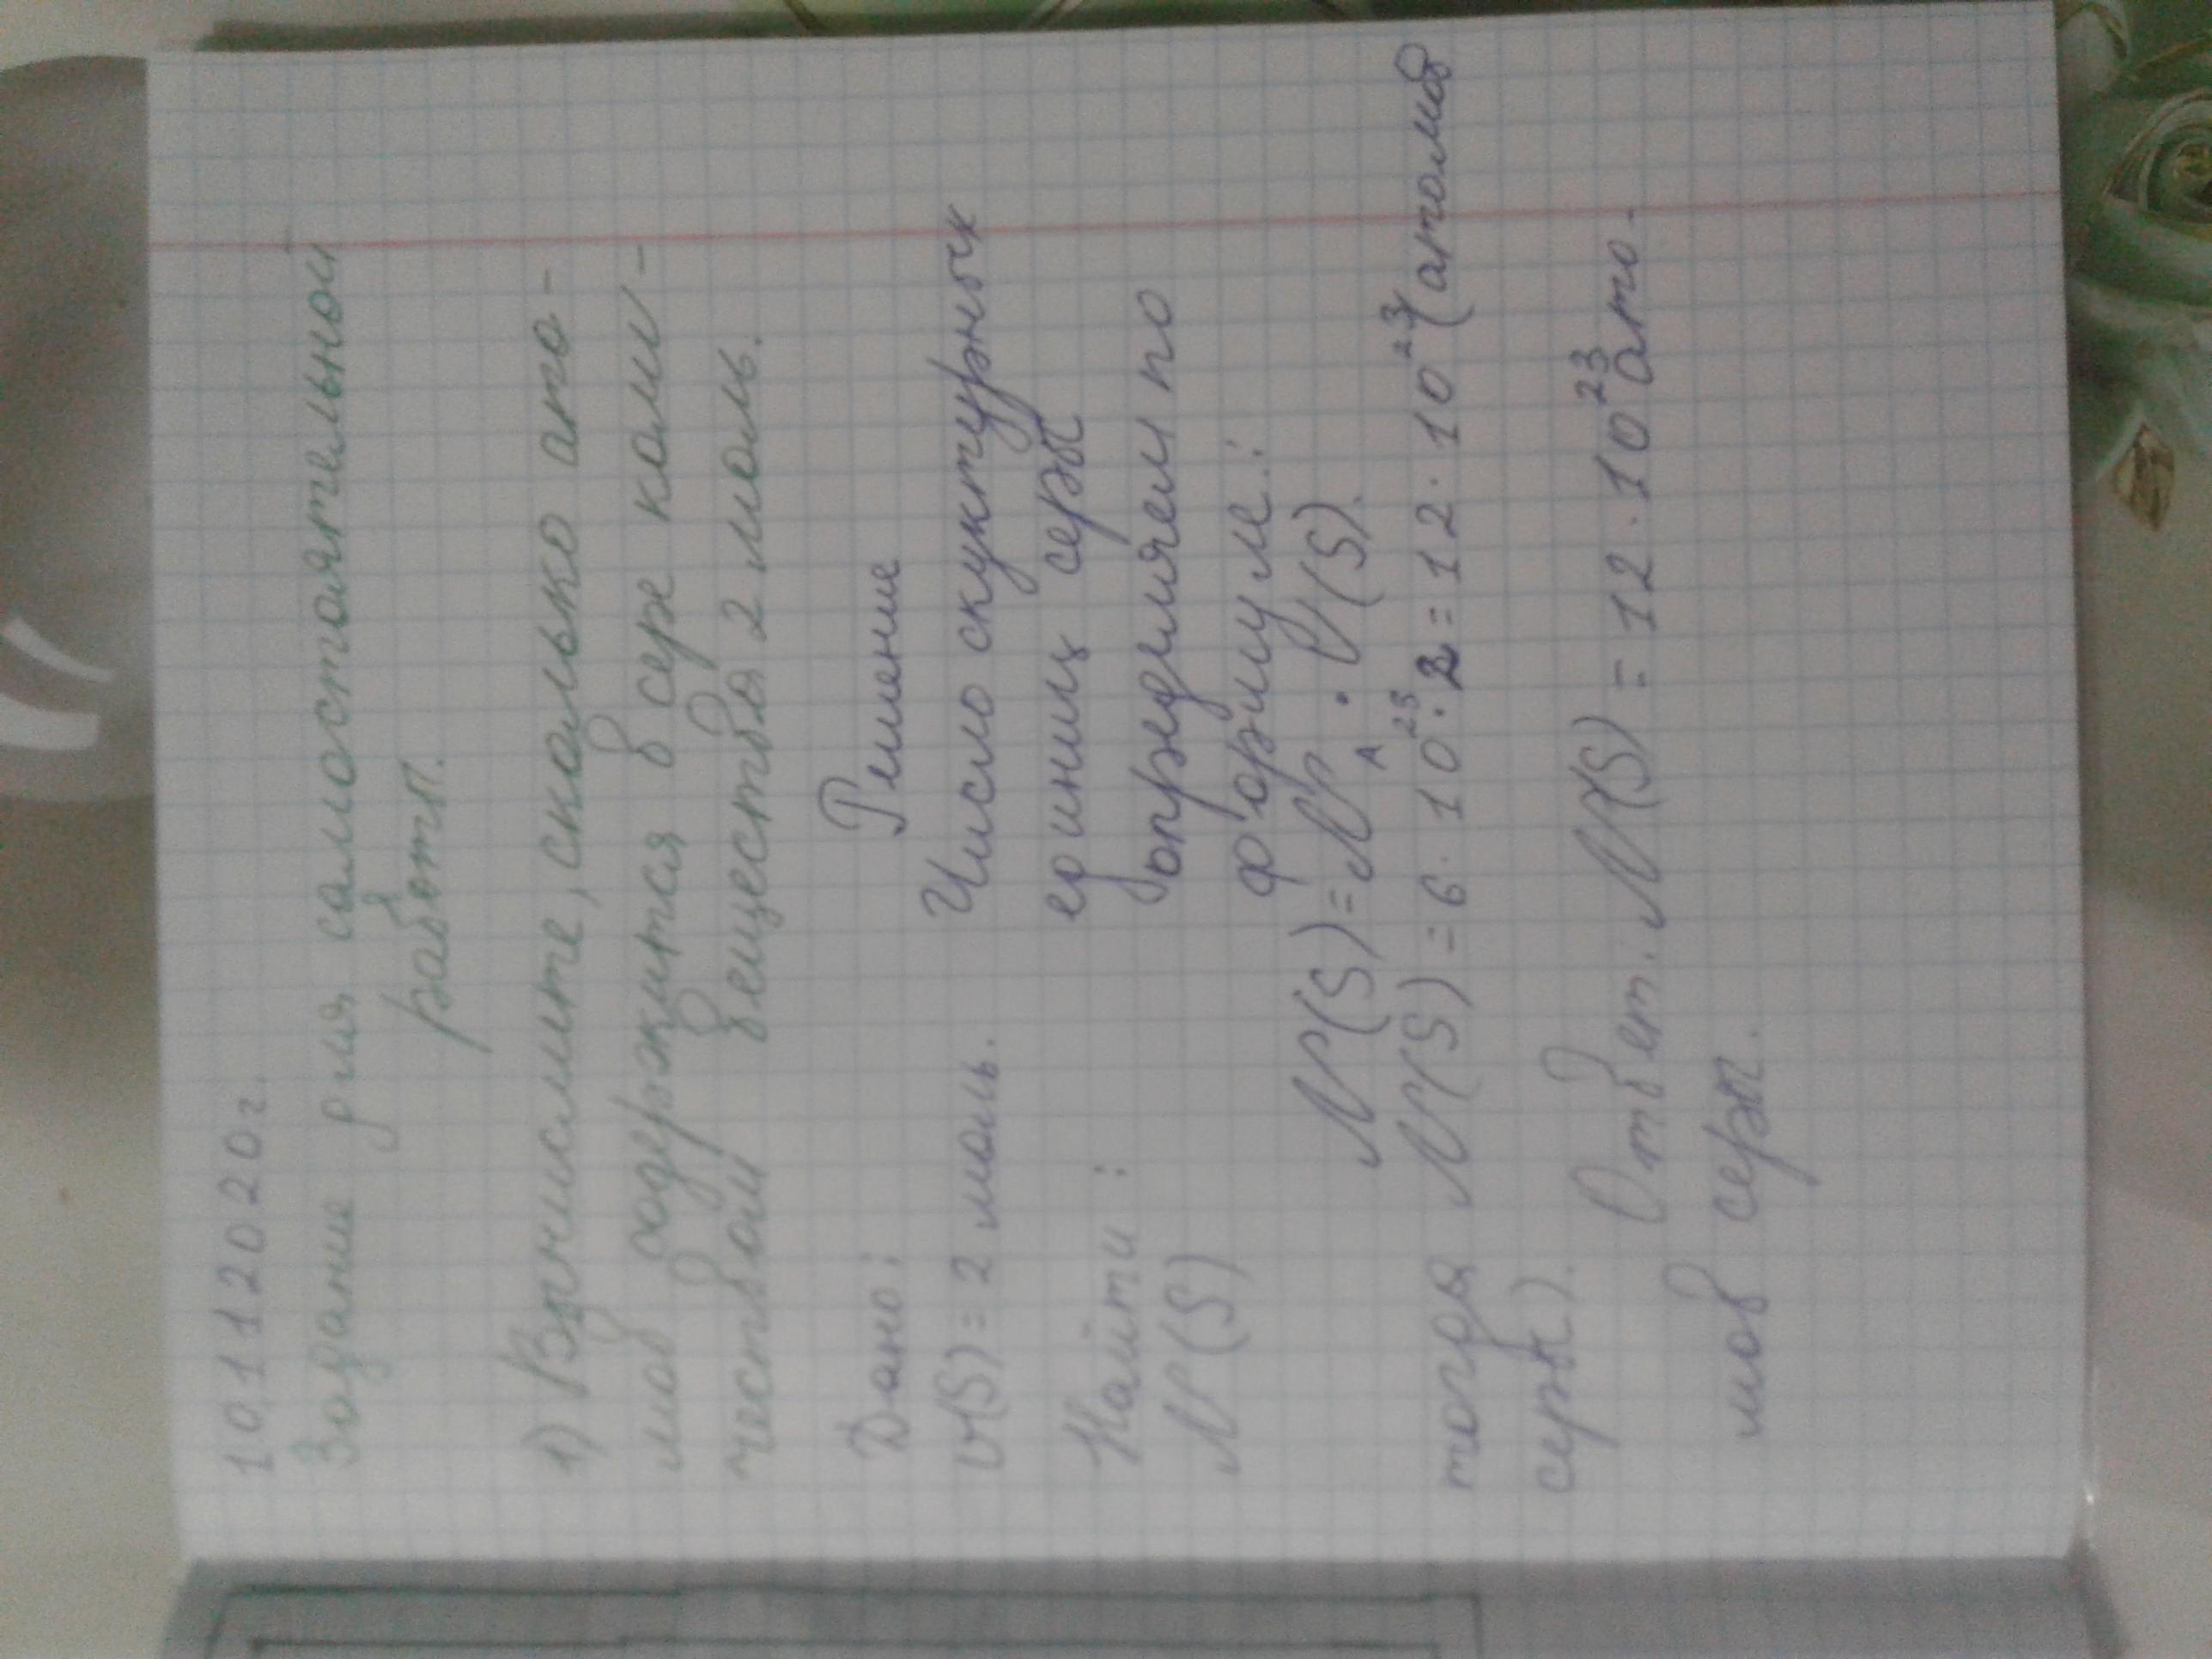 10.11 2020г.
Задание для самостоятельной
работы.
1) Вычислите, сколько ато-
мов содержится в сере коли-
чеством вещества 2 моль.
Дано:
ν(S) = 2 моль.
Найти:
N(S)
Решение
Число скуктурных
единиц серы
определяем по
формуле:
N(S) = N_A · ν(S).
тогда N(S) = 6 · 10²³ · 2 = 12 · 10²³ (атомов
серы).
Ответ. N(S) = 12 · 10²³ ато-
мов серы.